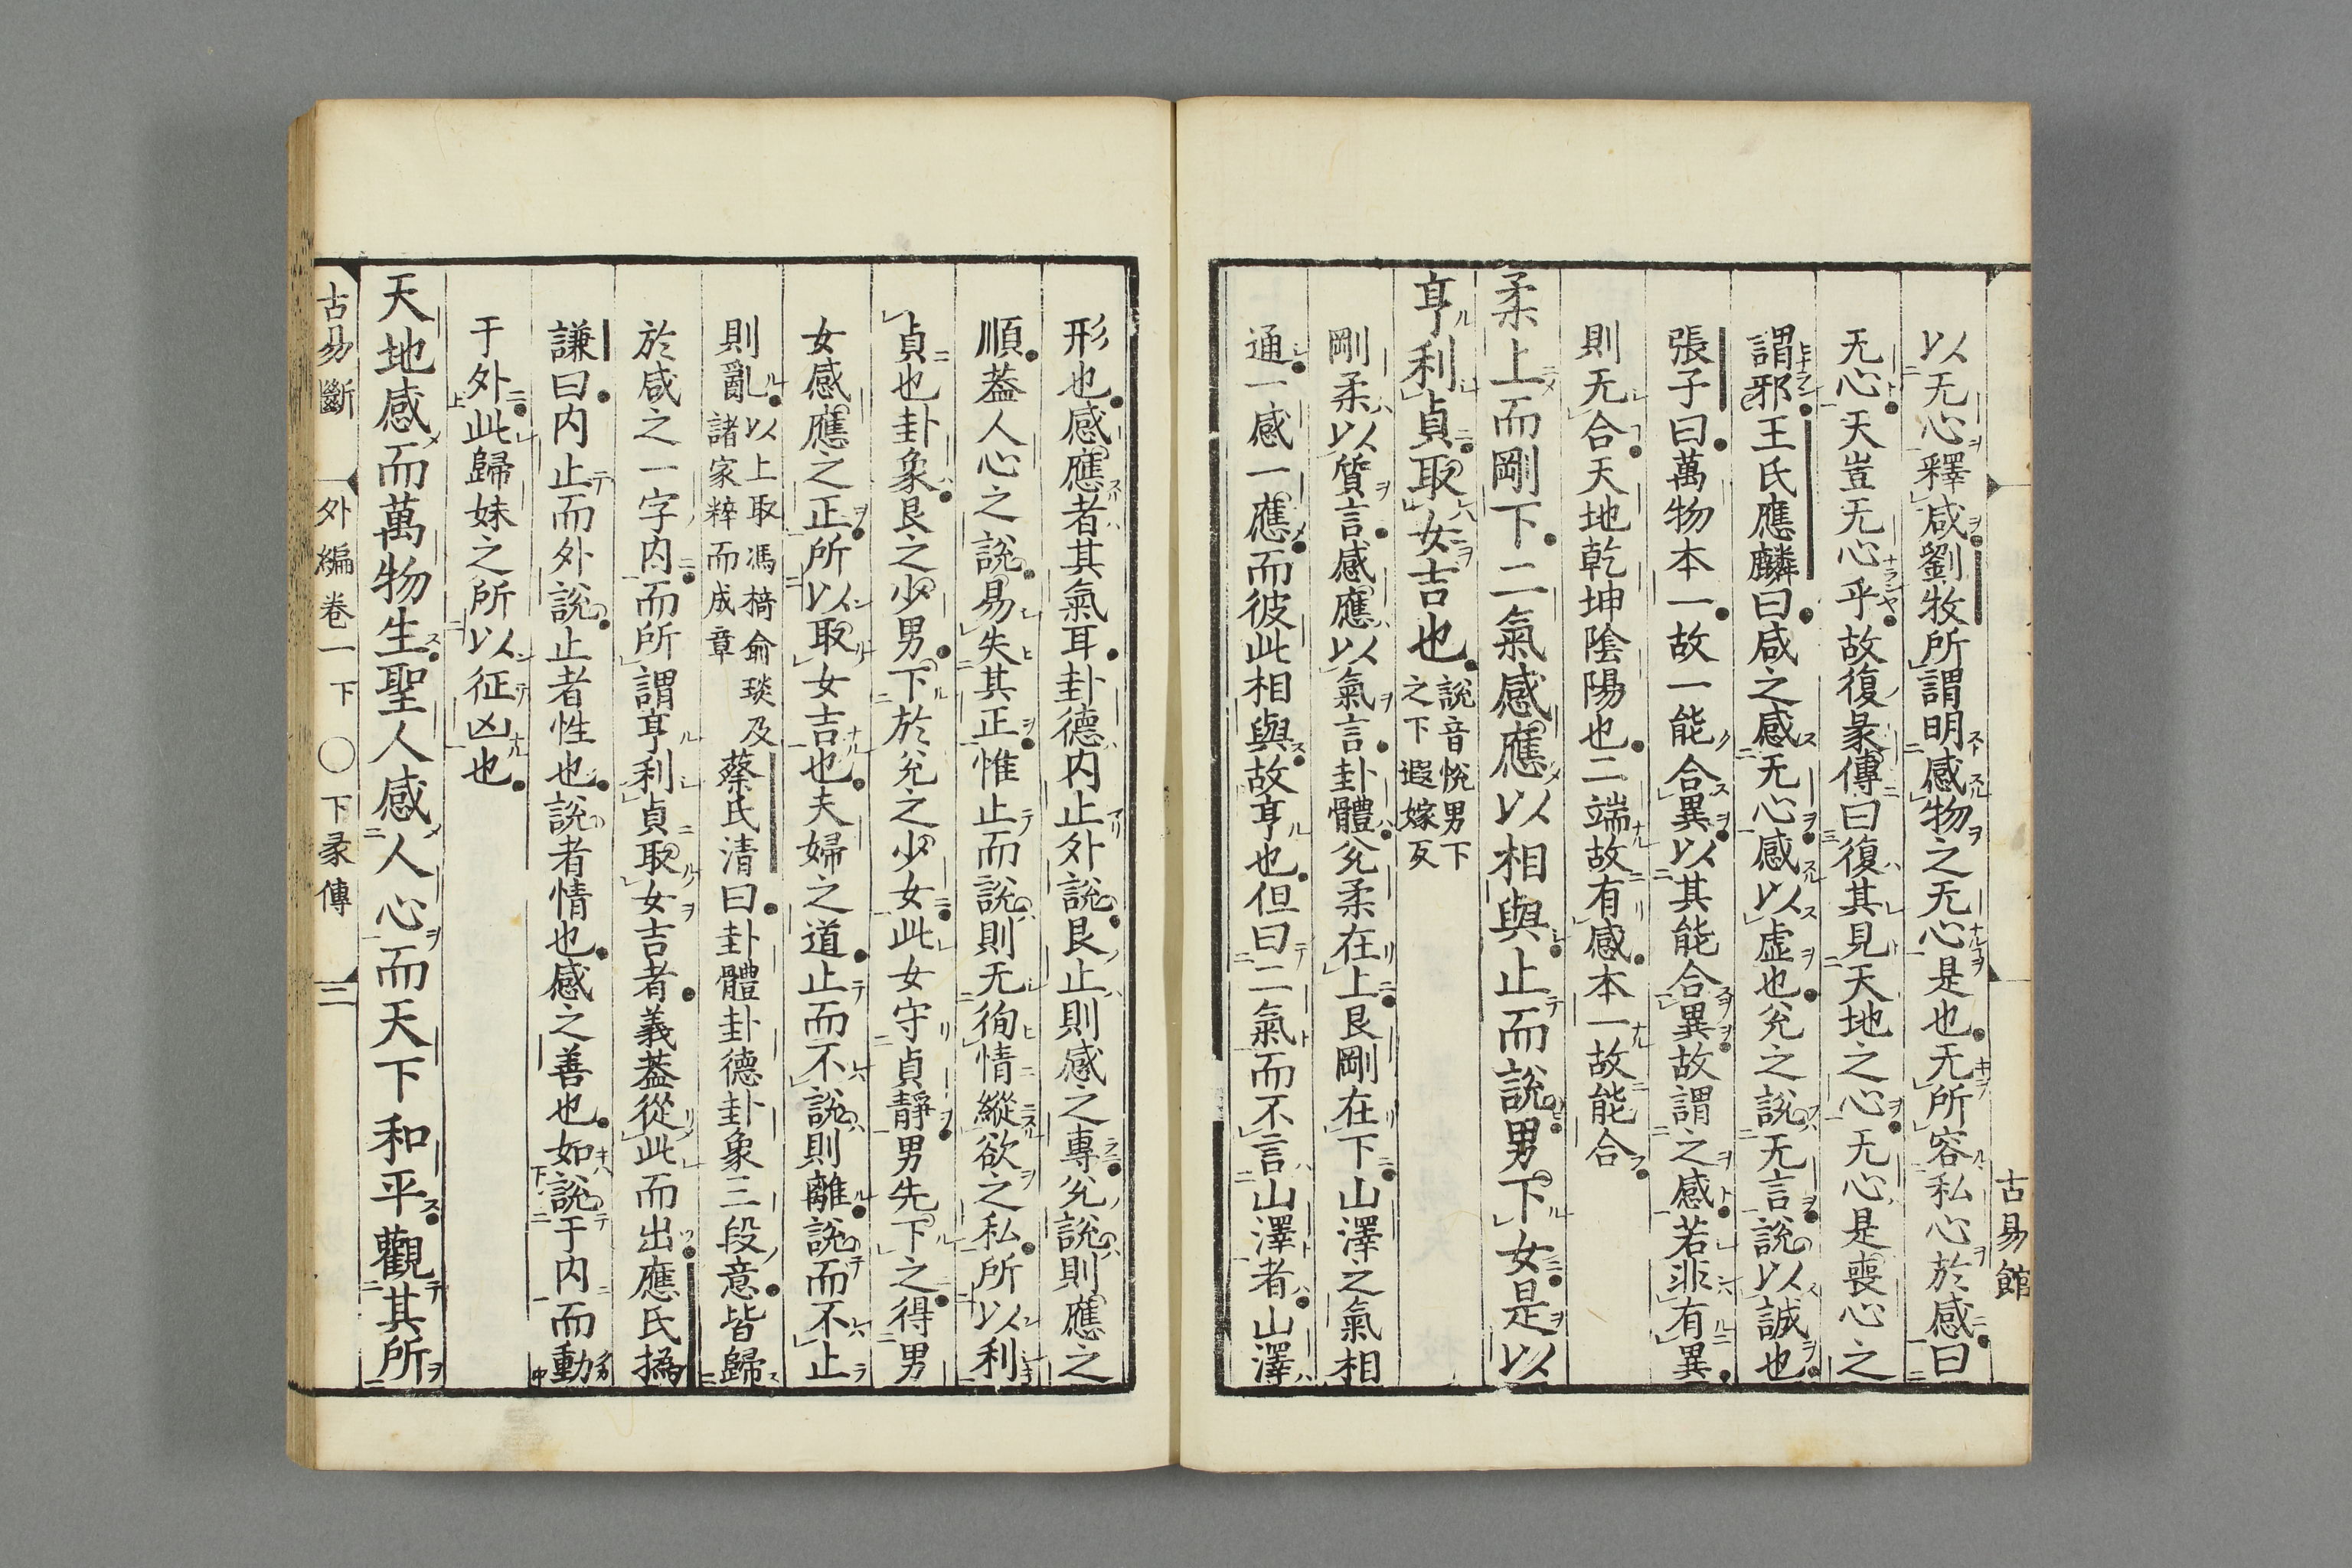 以无心釋咸劉牧所謂明感物之无心是也无所容私心於感曰
无心天豈无心乎故復彖傳曰復其見天地之心无心是喪心之
謂邪王氏應麟曰咸之感无心感以虛也兊之說无言說以誠也
張子曰萬物本一故一能合異以其能合異故謂之感若非有異
則无合天地乾坤陰陽也二端故有感本一故能合
柔上而剛下二氣感應以相與止而說男下女是以
亨利貞取女吉也說音悅男下
之下遐嫁反
剛柔以質言感應以氣言卦體兊柔在上艮剛在下山澤之氣相
通一感一應而彼此相與故亨也但曰二氣而不言山澤者山澤
古易館
形也感應者其氣耳卦德內止外說艮止則感之專兊說則應之
順蓋人心之說易失其正惟止而說則无徇情縱欲之私所以利
貞也卦象艮之少男下於兊之少女此女守貞靜男先下之得男
女感應之正所以取女吉也夫婦之道止而不說則離說而不止
則亂以上取馮椅俞琰及
諸家粹而成章
蔡氏清曰卦體卦德卦象三段意皆歸
於咸之一字內而所謂亨利貞取女吉者義蓋從此而出應氏撝
謙曰內止而外說止者性也說者情也感之善也如說于內而動
于外此歸妹之所以征凶也
天地感而萬物生聖人感人心而天下和平觀其所
古易斷 外編卷一下 ○下彖傳 三